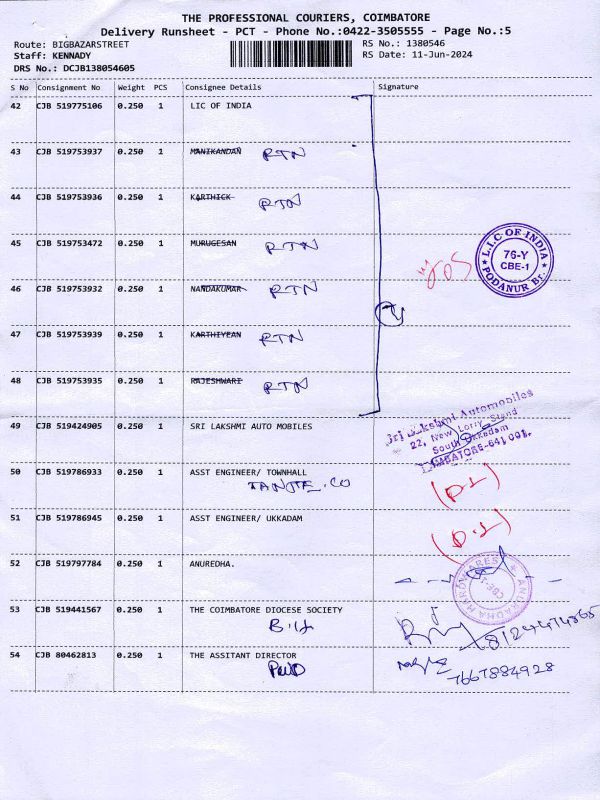 THE PROFESSIONAL COURIERS, COIMBATORE
Delivery Runsheet - PCT - Phone No.:0422-3505555 - Page No.:5
Route: BIGBAZARSTREET RS No.: 1380546
Staff: KENNADY RS Date: 11-Jun-2024
DRS No.: DCJB138054605
S No Consignment No Weight PCS Consignee Details Signature
42 CJB 519775106 0.250 1 LIC OF INDIA
43 CJB 519753937 0.250 1 MANIKANDAN RTN
44 CJB 519753936 0.250 1 KARTHICK RTN
45 CJB 519753472 0.250 1 MURUGESAN RTN
L.I.C OF INDIA
76-Y
CBE-1
PODANUR Br.
46 CJB 519753932 0.250 1 NANDAKUMAR RTN
47 CJB 519753939 0.250 1 KARTHIYEAN RTN
48 CJB 519753935 0.250 1 RAJESHWARI RTN
49 CJB 519424905 0.250 1 SRI LAKSHMI AUTO MOBILES
Sri Lakshmi Automobiles
22, New Lorry Stand
South Ukkadam
COIMBATORE-641 001.
50 CJB 519786933 0.250 1 ASST ENGINEER/ TOWNHALL
51 CJB 519786945 0.250 1 ASST ENGINEER/ UKKADAM
52 CJB 519797784 0.250 1 ANUREDHA.
53 CJB 519441567 0.250 1 THE COIMBATORE DIOCESE SOCIETY
8124474365
54 CJB 80462813 0.250 1 THE ASSITANT DIRECTOR
7667884928